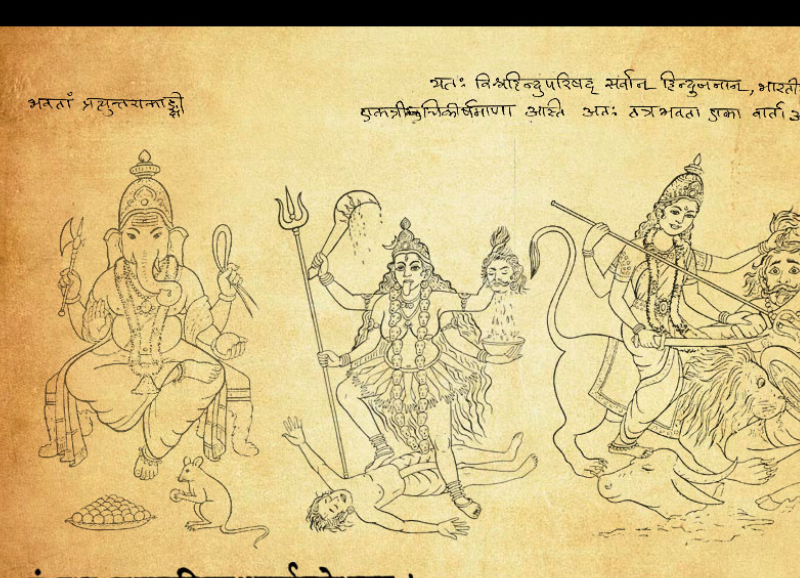 भवतां प्रत्युत्तराकाङ्क्षी
यतः विश्वहिन्दुपरिषद् सर्वान् हिन्दुजनान्, भारती
एकत्री चिकीर्षमाणा अस्ति अतः तत्रभवता एका वार्ता